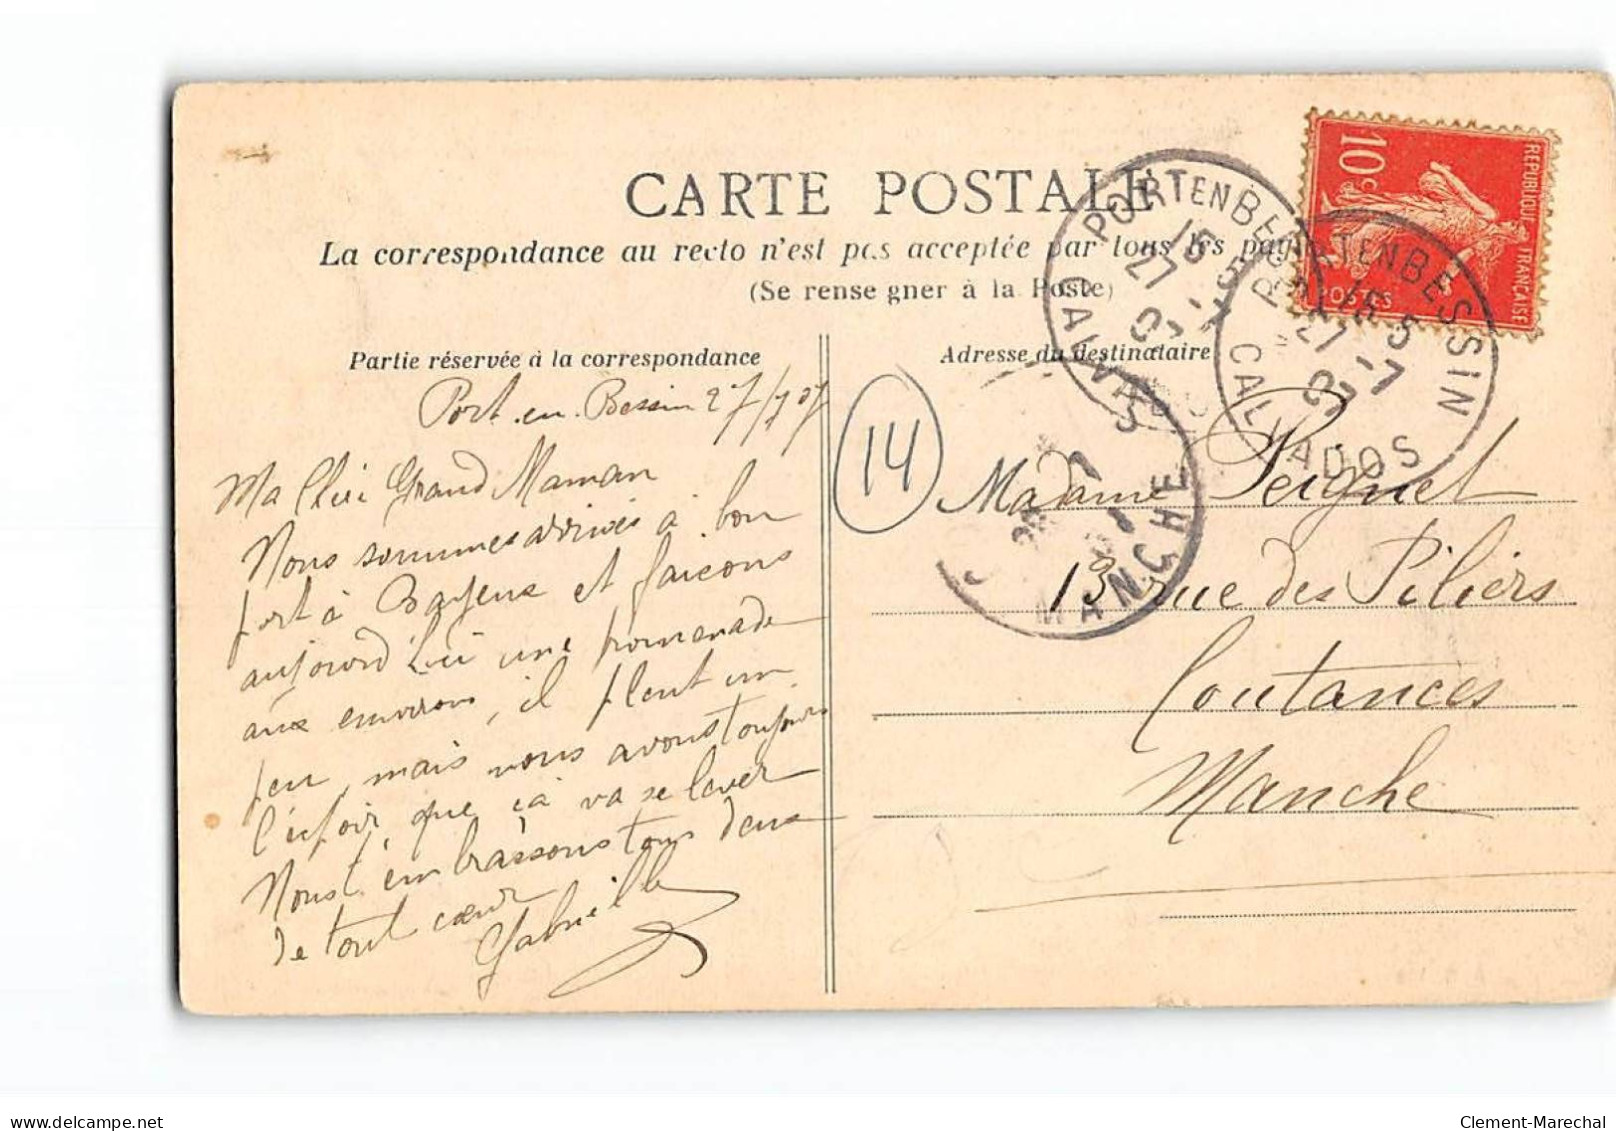 CARTE POSTALE
La correspondance au recto n'est pas acceptée par tous les pays
(Se renseigner à la Poste)
Partie réservée à la correspondance
Port-en-Bessin 27/7 07
Ma Chèi Grand Maman
Nous sommes arrivés à bon
port à Bayeux et faicons
aujourd'hui une promenade
aux environs, il pleut un
peu, mais nous avons toujours
l'espoir, que ça va se lever
Nous t'embrassons tous deux
de tout cœur
Gabrielle
14
Adresse du destinataire
Madame Peignet
13 rue des Piliers
Coutances
Manche
REPUBLIQUE FRANÇAISE
10c
POSTES
PORT EN BESSIN
15 5
27 -7
07
CALVADOS
PORT EN BESSIN
15 5
27 -7
07
CALVADOS
MANCHE
delcampe.net
Clement-Marechal